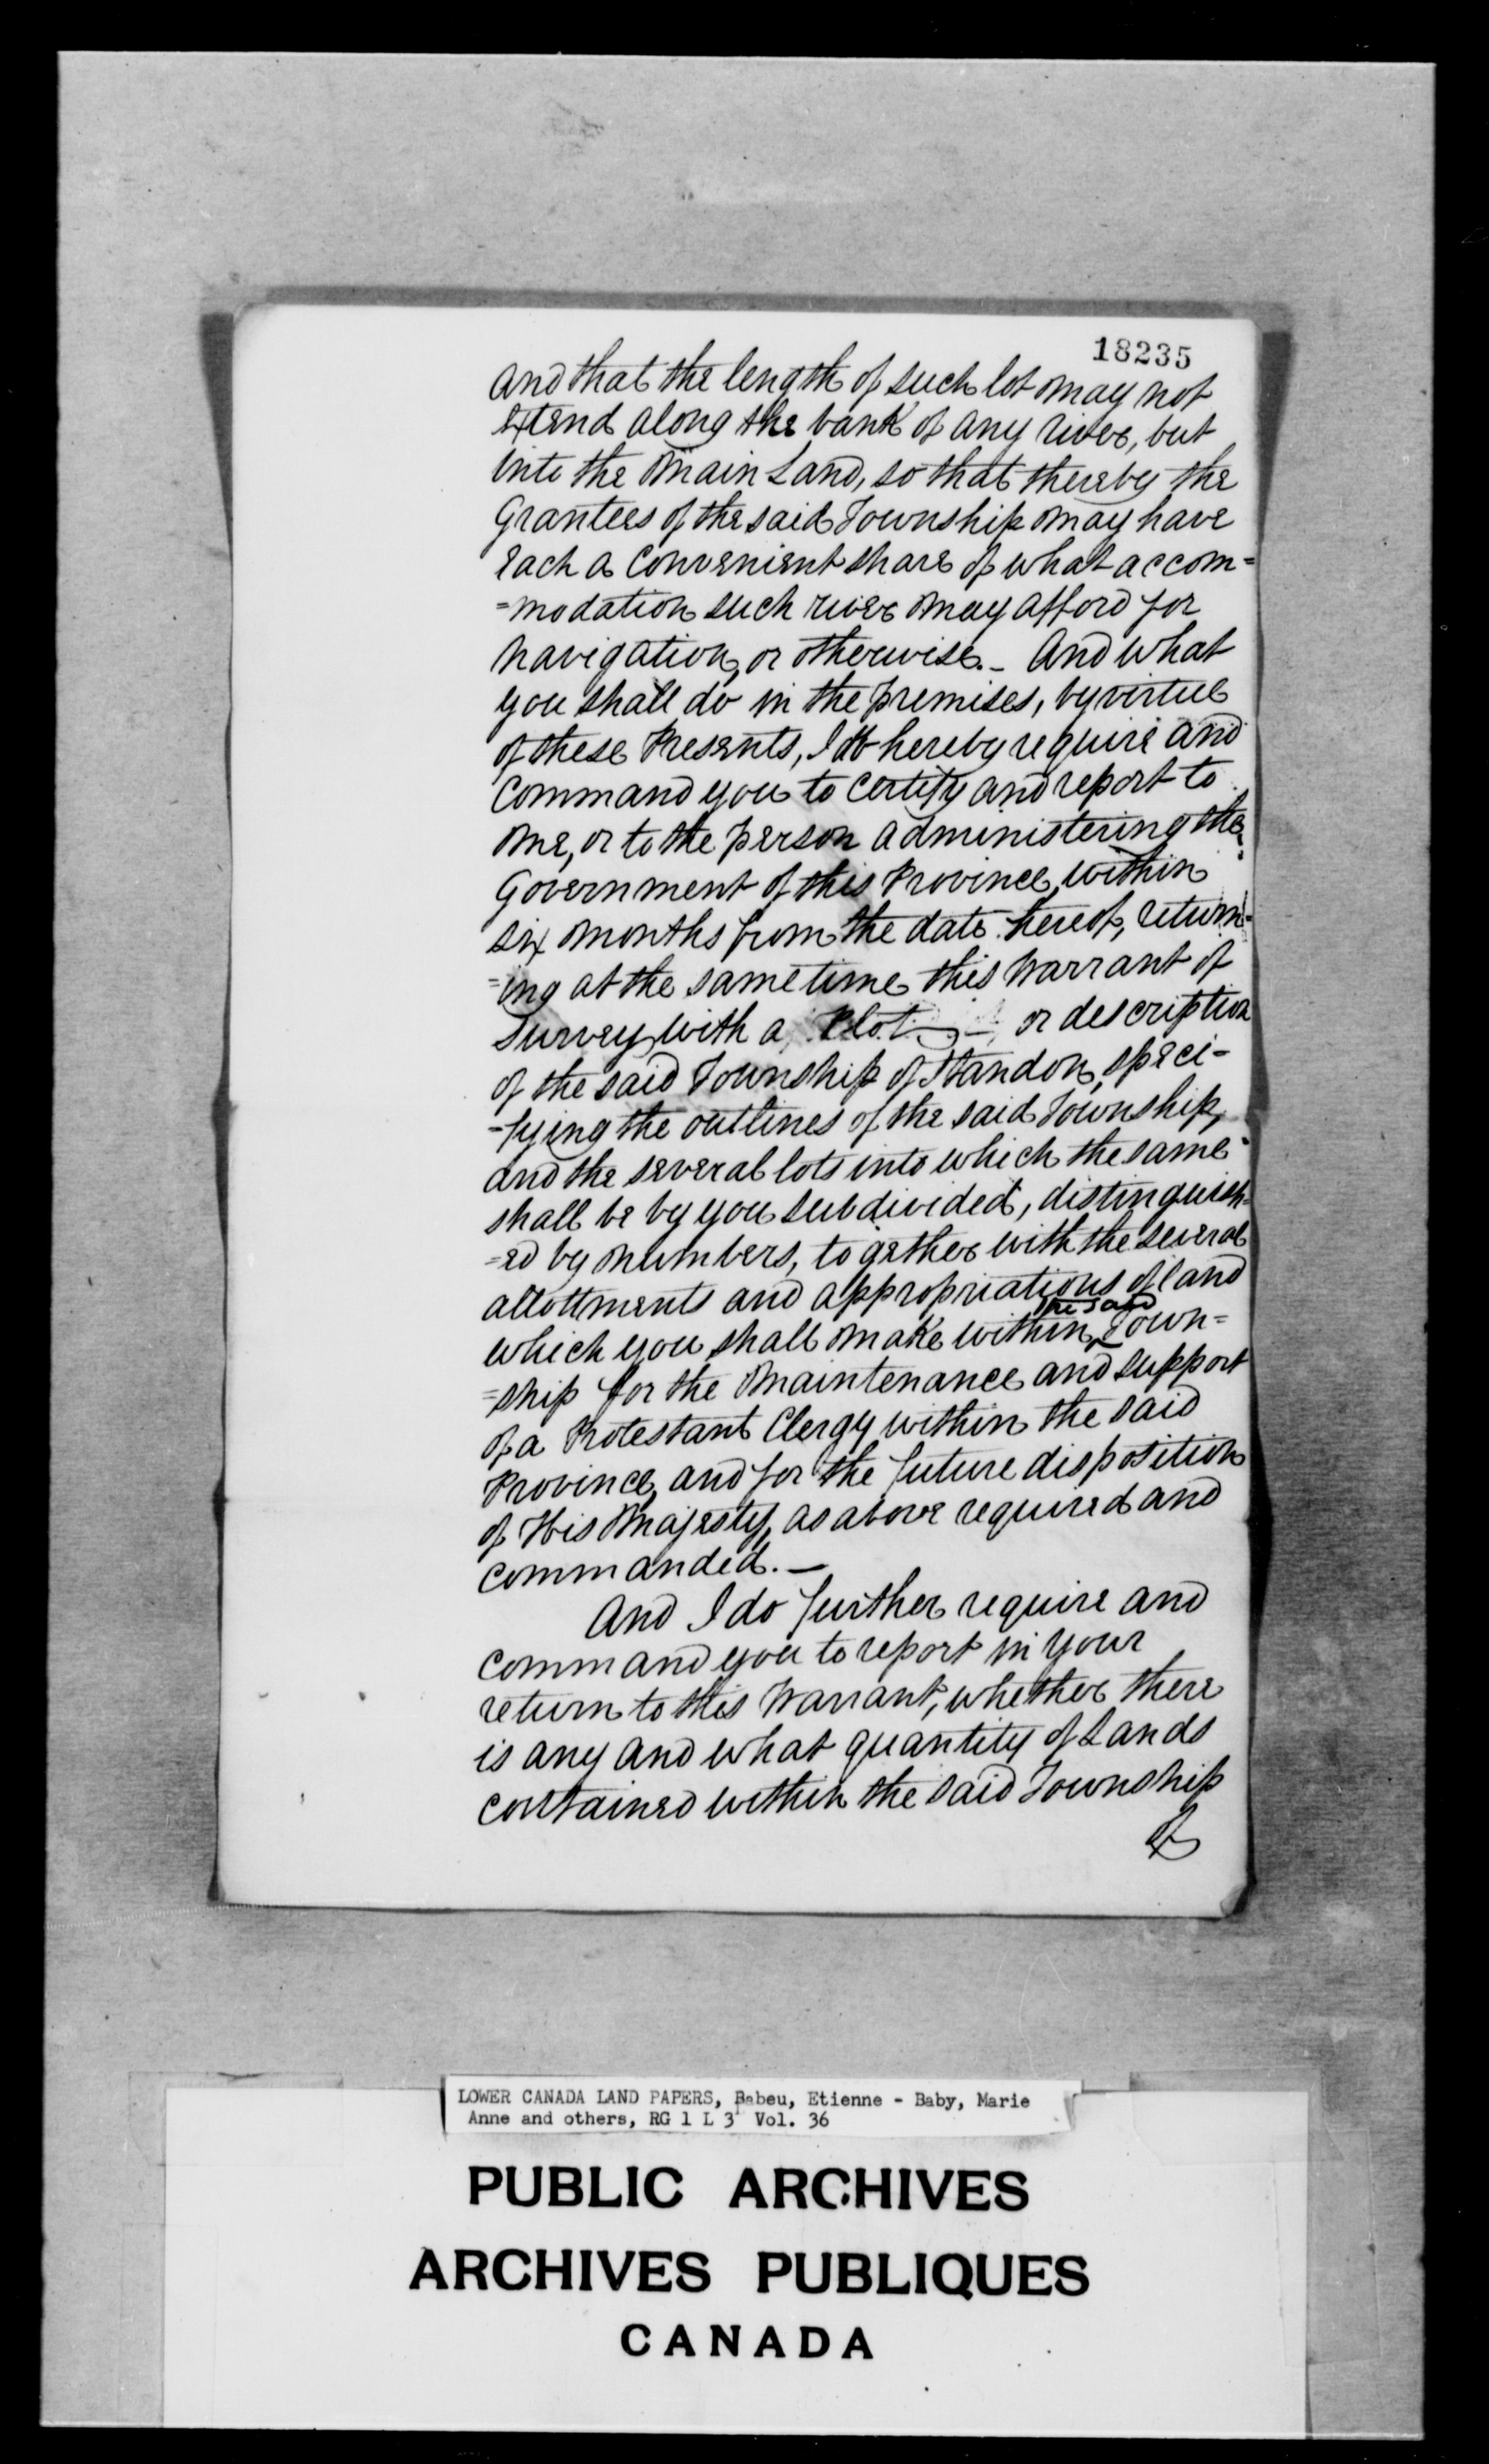 18235
and that the length of such lot may not
extend along the bank of any river, but
into the Main Land, so that thereby the
Grantees of the said Township may have
each a convenient share of what accom=
=modation such river may afford for
navigation, or otherwise. - And what
you shall do in the premises, by virtue
of these Presents, I do hereby require and
Command you to certify and report to
me, or to the person administering the
Government of this Province, within
six months from the date hereof, return=
=ing at the same time this Warrant of
Survey, with a Plot - or description
of the said Township of Standon, speci-
-fying the outlines of the said Township,
and the several lots into which the same
shall be by you subdivided, distinguish-
=ed by numbers, together with the several
allottments and appropriations of land
which you shall make within the said Town=
=ship for the Maintenance and support
of a Protestant Clergy within the said
Province, and for the future disposition
of His Majesty, as above required and
commanded. -
And I do further require and
command you to report in your
return to this Warrant, whether there
is any and what quantity of Lands
contained within the said Township
of
LOWER CANADA LAND PAPERS, Babeu, Etienne - Baby, Marie
Anne and others, RG 1 L 3 Vol. 36
PUBLIC ARCHIVES
ARCHIVES PUBLIQUES
CANADA